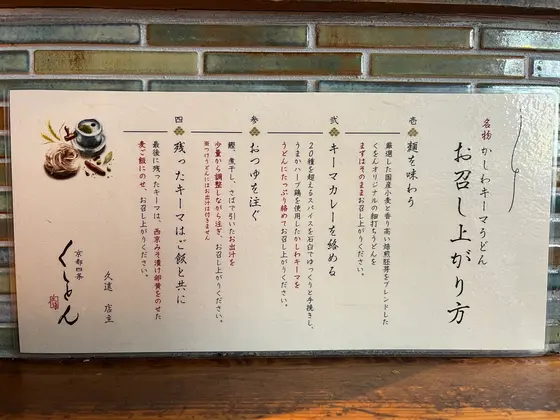 名物 かしわキーマうどん
お召し上がり方
壱
麺を味わう
厳選した国産小麦と香り高い焙煎胚芽をブレンドした
くをんオリジナルの細打ちうどんを
まずはそのままお召し上がりください。
弐
キーマカレーを絡める
20種を超えるスパイスを石臼でゆっくりと手挽きし、
うまかハーブ鶏を使用したかしわキーマを
うどんにたっぷり絡めてお召し上がりください。
参
おつゆを注ぐ
鰹、煮干し、さばで引いたお出汁を
少量から調整しながら注ぎ、お召し上がりください。
※つけうどんにはお出汁は付きません
四
残ったキーマはご飯と共に
最後に残ったキーマは、西京みそ漬け卵黄をのせた
麦ご飯にのせ、お召し上がりください。
久遠 店主
京都四条
くをん